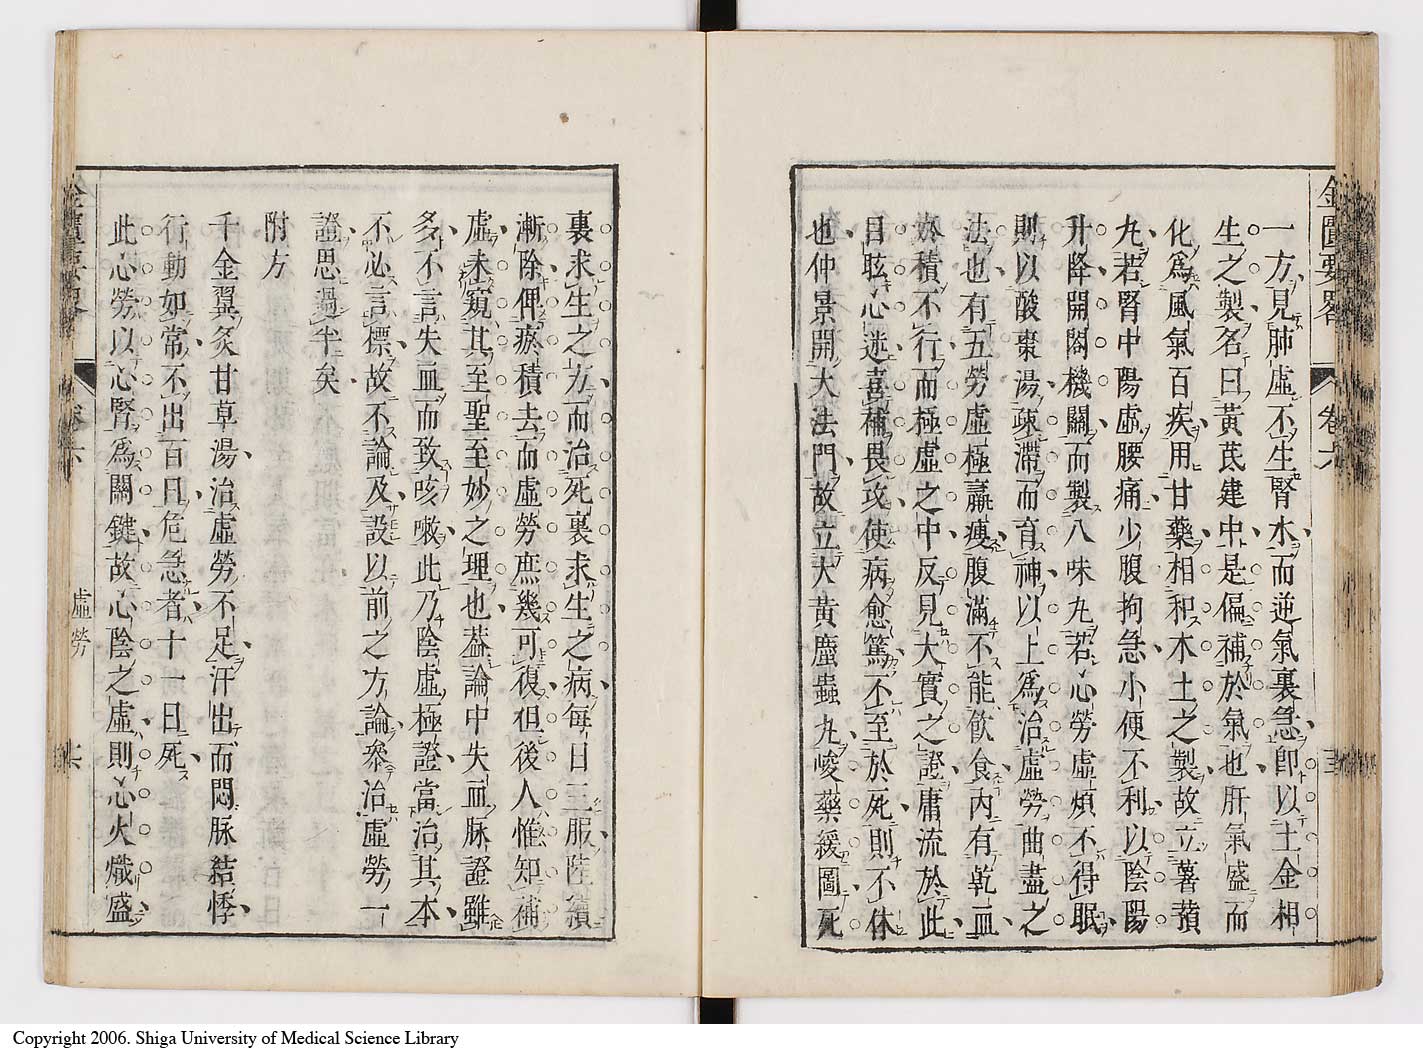 金匱要畧 卷六
一方見肺虛不生腎水而逆氣裏急卽以土金相
生之製名曰黃茋建中是偏補於氣也肝氣盛而
化爲風氣百疾用甘藥相和木土之製故立薯蕷
丸若腎中陽虛腰痛少腹拘急小便不利以陰陽
升降開闔機關而製八味丸若心勞虛煩不得眠
則以酸棗湯疎滯而育神以上爲治虛勞曲盡之
法也有五勞虛極羸瘦腹滿不能飲食內有乾血
瘀積不行而極虛之中反見大實之證庸流於此
目眩心迷喜補畏攻使病愈篤不至於死則不休
也仲景開大法門故立大黃䗪蟲丸峻藥緩圖死
裏求生之方而治死裏求生之病每日三服陸續
漸除俾瘀積去而虛勞庶幾可復但後人惟知補
虛未窺其至聖至妙之理也葢論中失血脉證雖
多不言失血而致咳嗽此乃陰虛極證當治其本
不必言標故不論及設以前之方論叅治虛勞一
證思過半矣
附方
千金翼炙甘草湯治虛勞不足汗出而悶脉結悸
行動如常不出百日危急者十一日死
此心勞以心腎爲關鍵故心陰之虛則心火熾盛
金匱要畧 卷六 虛勞
Copyright 2006. Shiga University of Medical Science Library